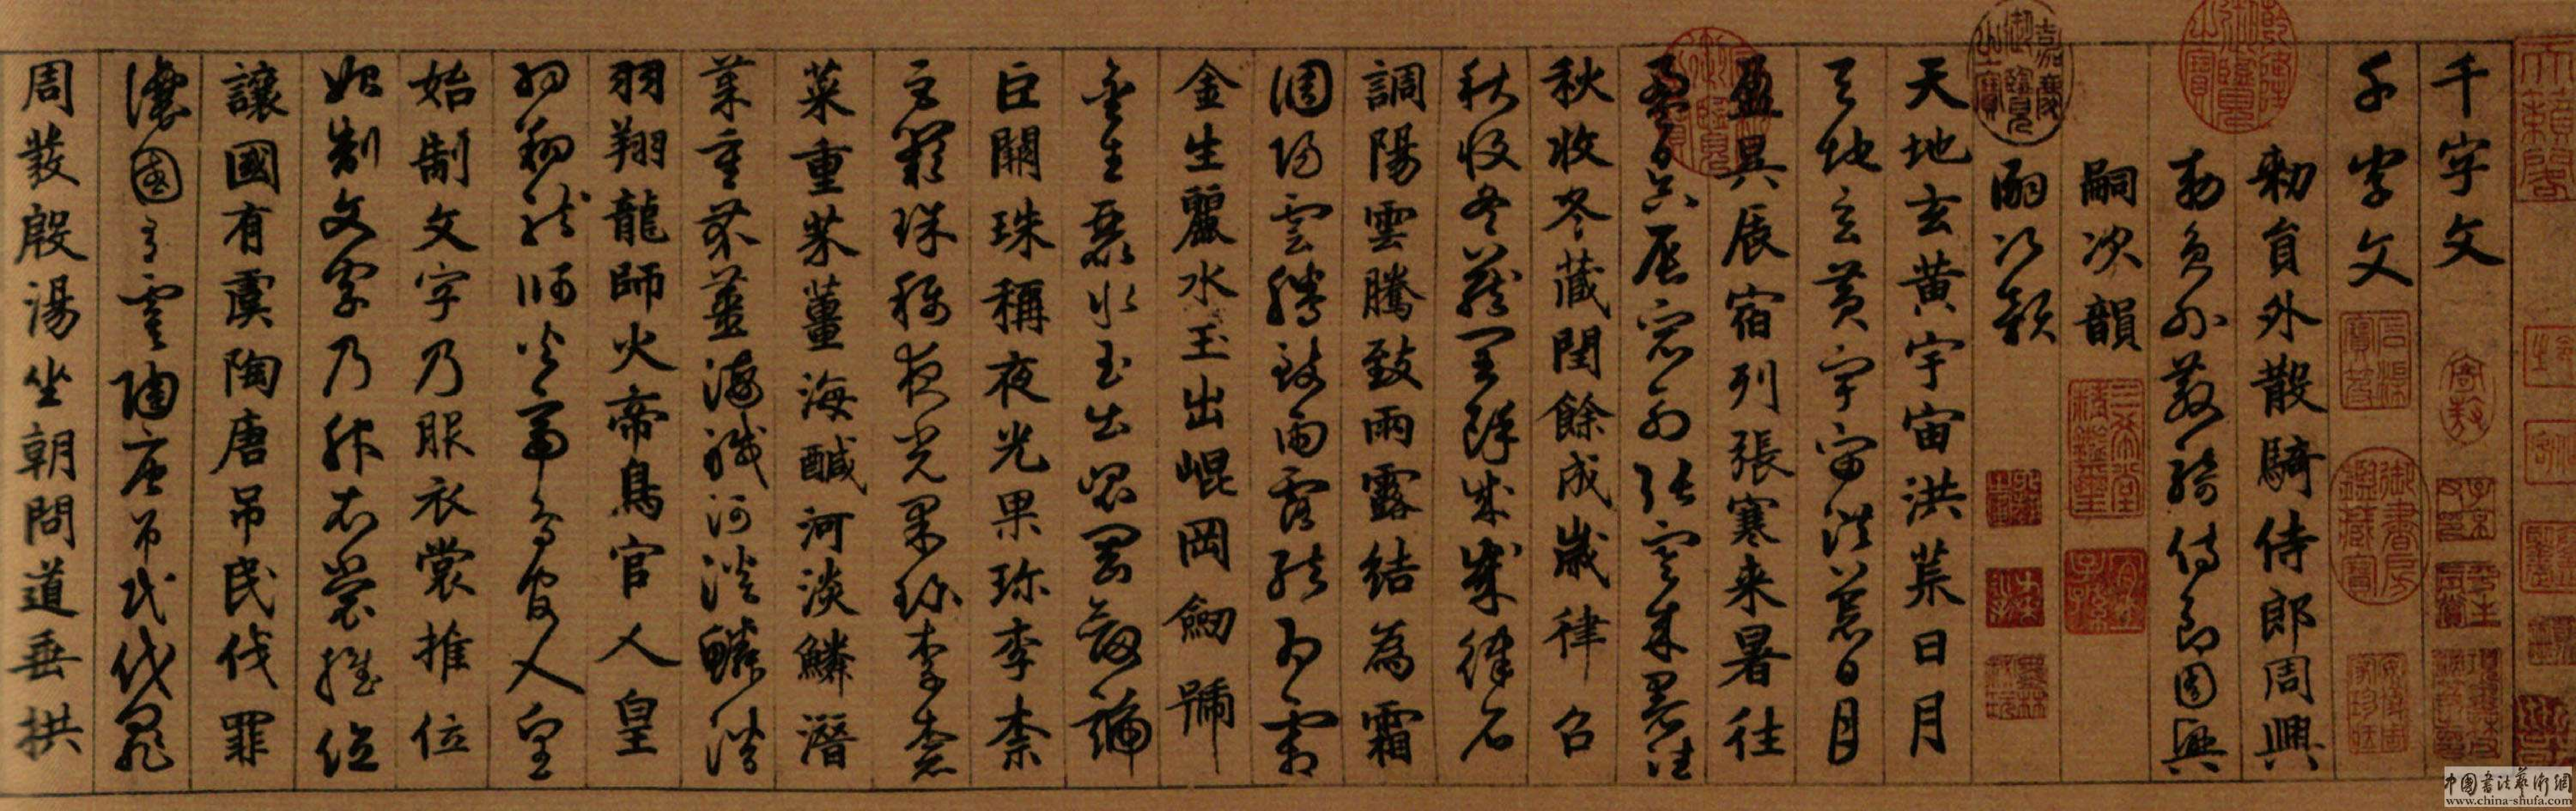 千字文
千字文
勑員外散騎侍郎周興
勑員外散騎侍郎周興
嗣次韻
嗣次韻
天地玄黃宇宙洪荒日月
天地玄黃宇宙洪荒日月
盈昃辰宿列張寒来暑往
盈昃辰宿列張寒来暑往
秋收冬藏閏餘成歲律召
秋收冬藏閏餘成歲律召
調陽雲騰致雨露結為霜
調陽雲騰致雨露結為霜
金生麗水玉出崐岡劒號
金生麗水玉出崐岡劒號
巨闕珠稱夜光果珎李柰
巨闕珠稱夜光果珎李柰
菜重芥薑海鹹河淡鱗潛
菜重芥薑海鹹河淡鱗潛
羽翔龍師火帝鳥官人皇
羽翔龍師火帝鳥官人皇
始制文字乃服衣裳推位
始制文字乃服衣裳推位
讓國有虞陶唐吊民伐罪
讓國有虞陶唐吊民伐罪
周發殷湯坐朝問道垂拱
嘉慶御覽之寶
乾隆御覽之寶
三希堂精鑑璽
宜子孫
御書房鑑藏寶
石渠寶笈
中國書法藝術網
www.china-shufa.com